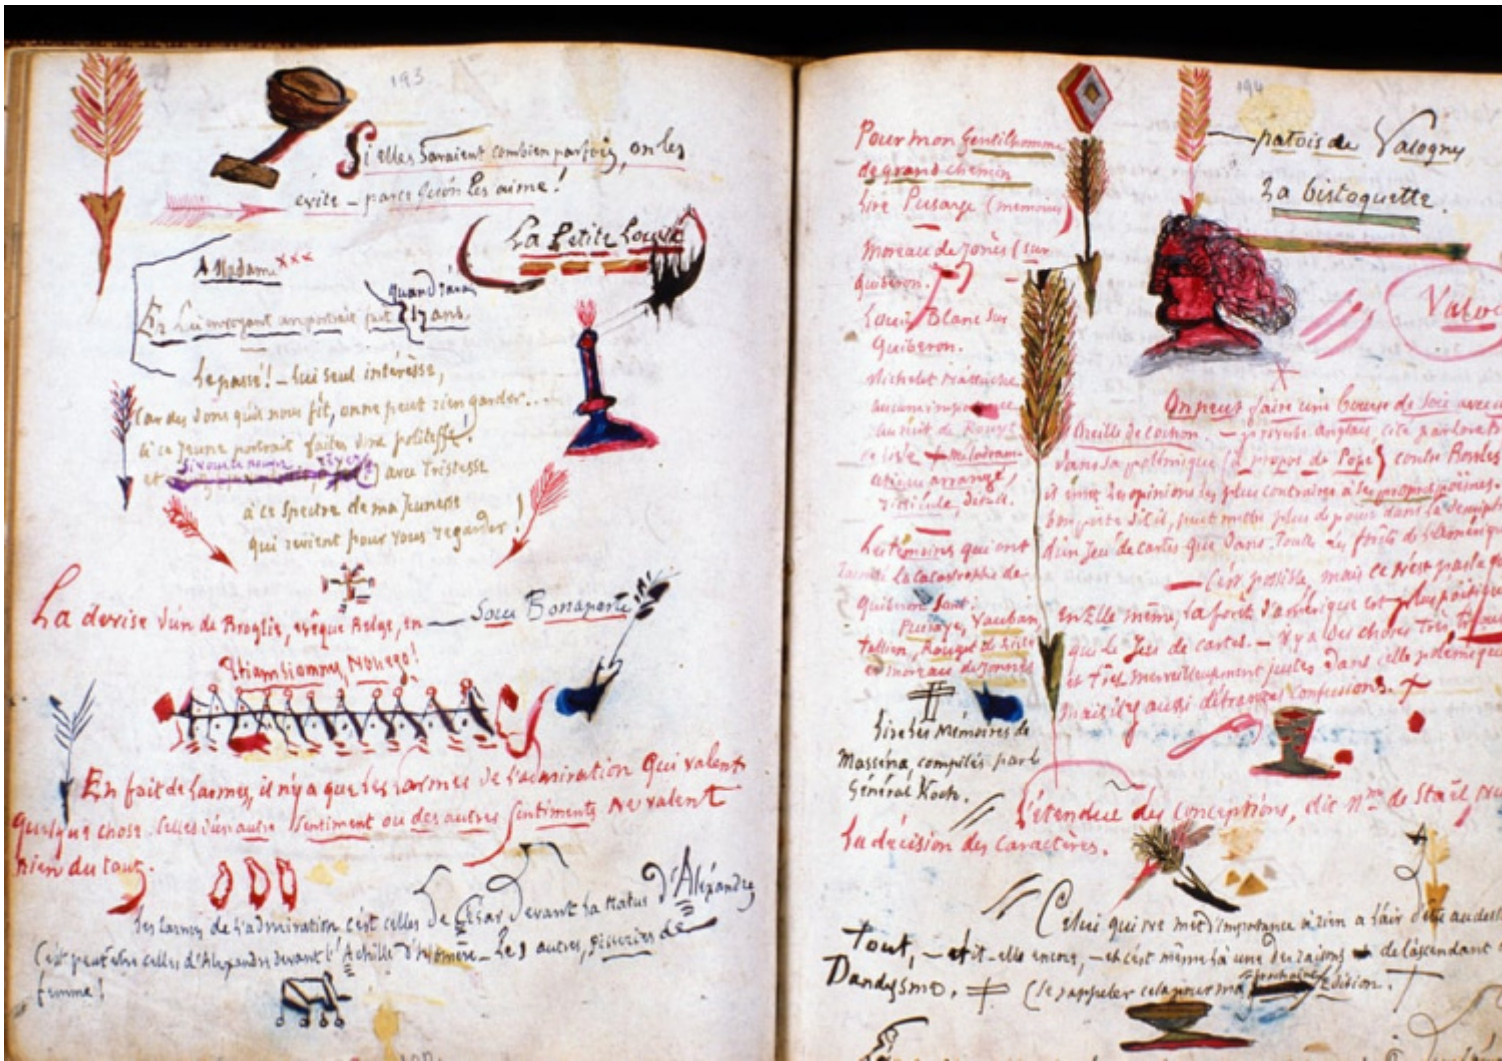 193
Si elles savaient combien parfois, on les
évite – parce qu'on les aime!
La Petite Louve
A Madame xxx
En lui envoyant un portrait fait quand j'avais 17 ans.
Le passé! – lui seul intéresse,
Car des dons qu'il nous fit, on ne peut rien garder...
à ce jeune portrait faites une politesse!
et avec tristesse
à ce spectre de ma jeunesse
qui revient pour vous regarder!
La devise d'un de Broglie, évêque Belge, en — sous Bonaparte
En fait de larmes, il n'y a que les larmes de l'admiration qui valent
quelque chose. Celles d'un autre sentiment ou des autres sentiments ne valent
rien du tout.
Les larmes de l'admiration c'est celles de César devant la statue d'Alexandre
C'est peut être celles d'Alexandre devant l'Achille d'Homère – les autres, pisseries de
femme!
194
Pour mon Gentilhomme
de grand chemin
lire Puisaye (mémoires)
Moreau de Jonès (sur
Quiberon.
Louis Blanc sur
Quiberon.
Michelet n'attache
aucune importance
au récit de Rouget
ce livre mélodrame
arrangé,
ridicule, dit-il.
Les témoins qui ont
la catastrophe de
Quiberon sont
Puisaye, Vauban
Tallien, Rouget de Lisle
et Moreau de Jonnès
Lire les Mémoires de
Masséna, compilés par le
Général Koch.
patois de Valognes
La bistoquette.
Valo
On peut faire une bourse de soie avec u
Oreille de cochon. – proverbe anglais, cité par lord
dans sa polémique (à propos de Pope) contre Bowles
il émet les opinions les plus contraires à ses propres poëmes.
bon poète dit il, peut mettre plus de poésie dans la
d'un Jeu de cartes que dans toutes les forêts de l'Amérique
— C'est possible, mais ce n'est pas la q
en Elle même, la forêt d'Amérique est plus poétique
que le Jeu de cartes. – Il y a des choses très,
et très merveilleusement justes dans cette polémique
mais il y a aussi d'étranges confusions.
L'étendue des conceptions, dit Mme de Staël, nu
la décision des caractères.
Celui qui ne met d'importance à rien a l'air d'être au dess
Tout, – dit-elle encore, – et c'est même là une des raisons de l'ascendant
Dandysme. (le rappeler cela pour ma prochaine Édition.